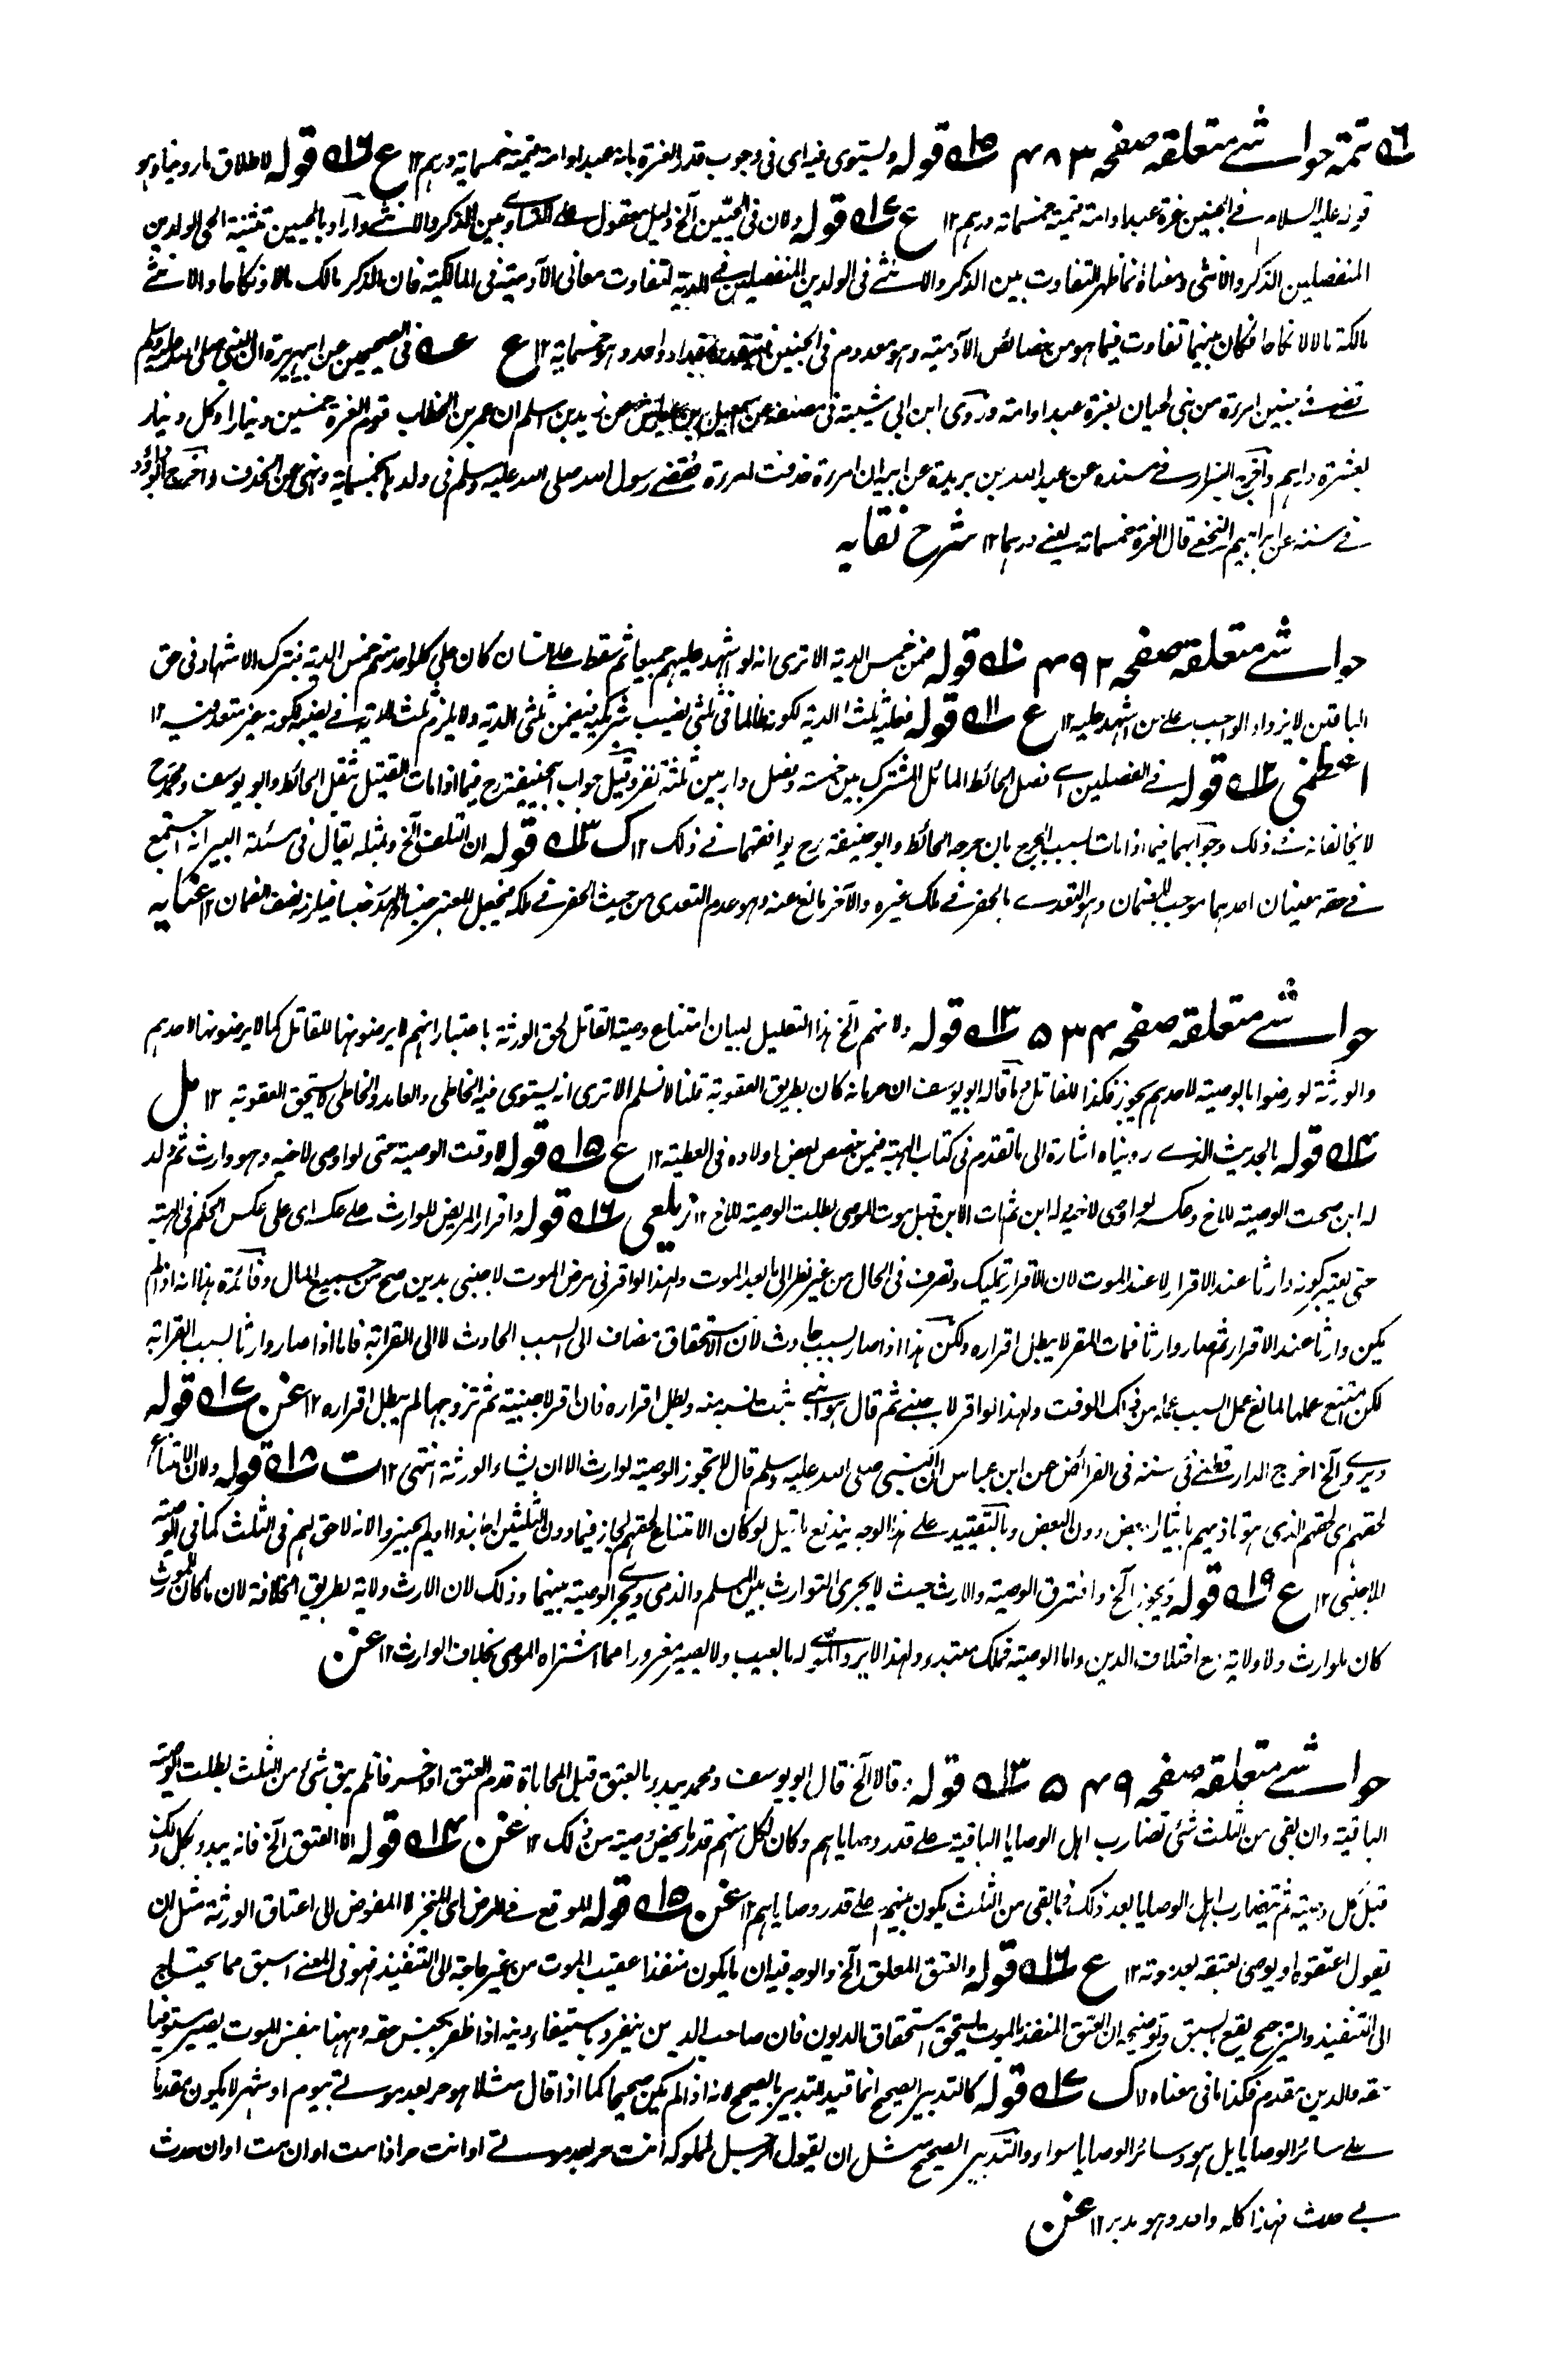 تتمة حواشے متعلقہ صفحہ ۴۸۳ ۱۵ قوله ويستوى فيه اى فى وجوب قدر الغرة بانه عبد او امة قيمته خمسمائة درهم ۱۲ ع ۱۶ قوله لاطلاق ما روينا وهو
قوله عليه السلام فے الجنين غرة عبد او امة قيمته خمسمائة درهم ۱۲ ع ۱۷ قوله ولان فى الحيين الخ دليل معقول علے التساوے بين الذكر والانثے واراد بالحيين تثنية الحى الولدين
المنفصلين الذكر والانثى ومعناه انما ظهر التفاوت بين الذكر والانثے فى الولدين المنفصلين فے الدية لتفاوت معانى الآدمية فى المالكية فان الذكر مالك مالا ونكاحا والانثے
مالكة مالا لا نكاحا فكان بينهما تفاوت فيما هو من خصائص الآدمية وهو معدوم فى الجنين فيتقدر بمقدار واحد وهو خمسمائة ۱۲ ع عه فى الصحيحين عن ابى هريرة ان النبى صلى الله عليه وسلم
قضے فے جنين امرءة من بنى لحيان بغرة عبد او امة وروى ابن ابى شيبة فى مصنفه عن اسمعيل بن عياش عن زيد بن اسلم ان عمر بن الخطاب قوم الغرة خمسين دينارا وكل دينار
بعشرة دراهم واخرج البزار فے مسنده عن عبد الله بن بريدة عن ابيه ان امرءة خذفت امرءة فقضے رسول الله صلى الله عليه وسلم فى ولدها بخمسمائة ونهى عن الخذف واخرج ابو داؤد
فے سننه عن ابراهيم النخعے قال الغرة خمسمائة يعنے درهما ۱۲ شرح نقايه
حواشے متعلقہ صفحہ ۴۹۲ ۱۰ قوله ضمن خمس الدية الا ترى انه لو اشهد عليهم جميعا ثم سقط علے انسان كان على كل واحد منهم خمس الدية فبترك الاشهاد فى حق
الباقين لا يزداد الواجب علے من اشهد عليه ۱۲ ع ۱۱ قوله فعليه ثلثا الدية لكونه ظالما فى ثلثى نصيب شريكيه فيضمن ثلثى الدية ولا يلزم ثلث الدية فے نصيبه لكونه غير متعد فيه ۱۲
اعظمى ۱۲ قوله فے الفصلين اے فصل الحائط المائل المشترك بين خمسة وفصل دار بين ثلثة نفر وقيل جواب ابى حنيفة رح فيما اذا مات القتيل بثقل الحائط وابو يوسف ومحمد رح
لا يخالفانه فے ذلك وجوابهما فيما اذا مات بسبب الجرح بان جرحه الحائط وابو حنيفة رح يوافقهما فے ذلك ۱۲ ك ۱۳ قوله ان التلف الخ وبمثله يقال فى مسئلة البير انه اجتمع
فے حقه معنيان احدهما موجب للضمان وهو التعدے بالحفر فے ملك غيره والآخر مانع عنه وهو عدم التعدى من حيث الحفر فے ملكه فيجعل المعتبر جنسا والمهدر جنسا فيلزمه نصف الضمان ۱۲ عنايه
حواشے متعلقہ صفحہ ۵۳۴ ۱۳ قوله ولانهم الخ هذا التعليل لبيان امتناع وصية القاتل لحق الورثة باعتبار انهم لا يرضونها للقاتل كما لا يرضونها لاحدهم
والورثة لو رضوا بالوصية لاحدهم يجوز فكذا للقاتل وما قاله ابو يوسف ان حرمانه كان بطريق العقوبة قلنا لا نسلم الا ترى انه يستوى فيه الخاطى والعامد والخاطى لا يستحق العقوبة ۱۲ مل
۱۴ قوله بالحديث الذے رويناه اشارة الى ما تقدم فى كتاب الهبة فيمن خصص بعض اولاده فى العطية ۱۲ ع ۱۵ قوله لا وقت الوصية حتى لو اوصى لاخيه وهو وارث ثم ولد
له ابن صحت الوصية للاخ وعكسه لو اوصى لاخيه وله ابن ثم مات الابن قبل موت الموصى بطلت الوصية للاخ ۱۲ زيلعى ۱۶ قوله واقرار المريض للوارث علے عكسه اى على عكس الحكم فى الهبة
حتى يعتبر كونه وارثا عند الاقرار لا عند الموت لان الاقرار تمليك وتصرف فى الحال من غير نظر الى ما بعد الموت ولهذا لو اقر فى مرض الموت لاجنبى بدين صح من جميع المال وفائدة هذا انه اذا لم
يكن وارثا عند الاقرار ثم صار وارثا فمات المقر لا يبطل اقراره ولكن هذا اذا صار بسبب حادث لان الاستحقاق يضاف الى السبب الحادث لا الى القرابة فاما اذا صار وارثا بسبب القرابة
لكن امتنع عملها لمانع عمل السبب عمله من ذلك الوقت ولهذا لو اقر لاجنبے ثم قال هو ابنے ثبت نسبه منه وبطل اقراره فان اقر لاجنبية ثم تزوجها لم يبطل اقراره ۱۲ عن ۱۷ قوله
ويروے الخ اخرج الدارقطنے فى سننه فى الفرائض عن ابن عباس ان النبى صلى الله عليه وسلم قال لا تجوز الوصية لوارث الا ان يشاء الورثة انتهى ۱۲ ت ۱۸ قوله ولان الامتناع
لحقهم اى لحقهم الذى هو تاذيهم بايثار البعض دون البعض وبالتقييد علے هذا الوجه يندفع ما قيل لو كان الامتناع لحقهم لجاز فيما دون الثلثين اجازوا او لم يجيزوا لانه لا حق لهم فى الثلث كما فى الوصية
للاجنبى ۱۲ ع ۱۹ قوله ويجوز الخ وافترق الوصية والارث حيث لا يجرى التوارث بين المسلم والذمى ويجرے الوصية بينهما وذلك لان الارث ولاية بطريق الخلافة لان ما كان للمورث
كان للوارث ولا ولاية مع اختلاف الدين واما الوصية فملك مبتدء ولهذا لا يرد الموصے له بالعيب ولا يصير مغرورا مما اشتراه الموصى بخلاف الوارث ۱۲ عن
حواشے متعلقہ صفحہ ۵۴۹ ۱۳ قوله وقالا الخ قال ابو يوسف ومحمد يبدء بالعتق قبل المحاباة قدم العتق او اخر فان لم يبق شئ من الثلث بطلت الوصية
الباقية وان بقى من الثلث شئ تضارب اهل الوصايا الباقية علے قدر وصاياهم وكان لكل منهم قدر ما يخص وصيته من ذلك ۱۲ عن ۱۴ قوله الا العتق الخ فانه يبدء بكل ذلك
قبل كل وصية ثم يتضارب اهل الوصايا بعد ذلك فما بقى من الثلث يكون بينهم علے قدر وصاياهم ۱۲ عن ۱۵ قوله الموقع فے المرض اى المنجز لا المفوض الى اعتاق الورثة مثل ان
يقول اعتقوه او يوصى بعتقه بعد موته ۱۲ ع ۱۶ قوله والعتق المعلق الخ والوجه فيه ان ما يكون منفذا عقيب الموت من غير حاجة الى التنفيذ فهو فى المعنے اسبق مما يحتاج
الى التنفيذ والترجيح يقع بالسبق وتوضيحه ان العتق المنفذ بالموت يستحق استحقاق الديون فان صاحب الدين ينفرد باستيفاء دينه اذا ظفر بجنس حقه وههنا بنفس الموت يصير مستوفيا
حقه والدين مقدم فكذا ما فى معناه ك ۱۷ قوله كالتدبير الصحيح انما قيد التدبير بالصحيح لانه اذا لم يكن صحيحا كما اذا قال مثلا هو حر بعد موتے بيوم او شهر لا يكون مقدما
علے سائر الوصايا بل هو وسائر الوصايا سواء والتدبير الصحيح مثل ان يقول الرجل لمملوكه انت حر بعد موتے او انت حر اذا مت او ان مت او ان حدث
بے حدث فهذا كله واحد وهو مدبر ۱۲ عن